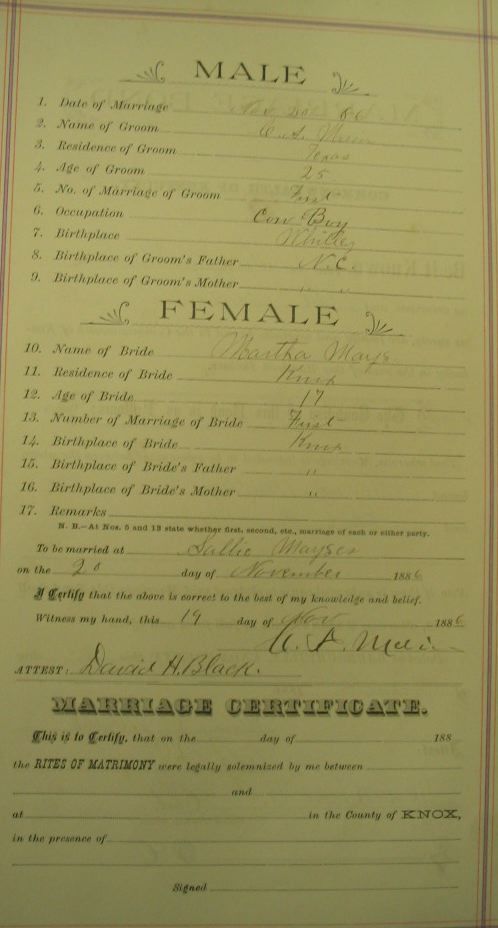 MALE
1. Date of Marriage Nov 20 86
2. Name of Groom
3. Residence of Groom Texas
4. Age of Groom 25
5. No. of Marriage of Groom First
6. Occupation Cow Boy
7. Birthplace Whitley
8. Birthplace of Groom's Father N.C.
9. Birthplace of Groom's Mother " "
FEMALE
10. Name of Bride Martha Mays
11. Residence of Bride Knox
12. Age of Bride 17
13. Number of Marriage of Bride First
14. Birthplace of Bride Knox
15. Birthplace of Bride's Father "
16. Birthplace of Bride's Mother "
17. Remarks
N. B.—At Nos. 5 and 13 state whether first, second, etc., marriage of each or either party.
To be married at Sallie
on the 20 day of November 1886
I Certify that the above is correct to the best of my knowledge and belief.
Witness my hand, this 19 day of Nov 1886
ATTEST: David H. Black.
MARRIAGE CERTIFICATE.
This is to Certify, that on the day of 188
the RITES OF MATRIMONY were legally solemnized by me between
and
at in the County of KNOX,
in the presence of
Signed